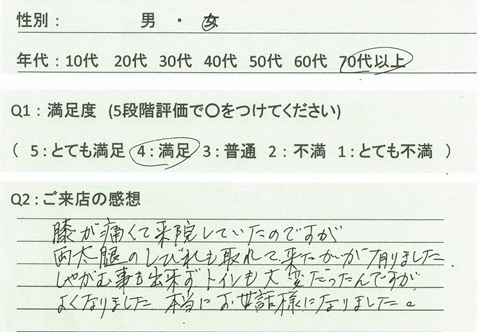 性別： 男 ・ 女
年代：10代 20代 30代 40代 50代 60代 70代以上
Q1：満足度 (5段階評価で〇をつけてください)
( 5：とても満足 4：満足 3：普通 2：不満 1：とても不満 )
Q2：ご来店の感想
膝が痛くて来院していたのですが
両太腿のしびれも取れて来たかいが有りました
しゃがむ事も出来ずトイレも大変だったんですが
よくなりました 本当にお世話様になりました。